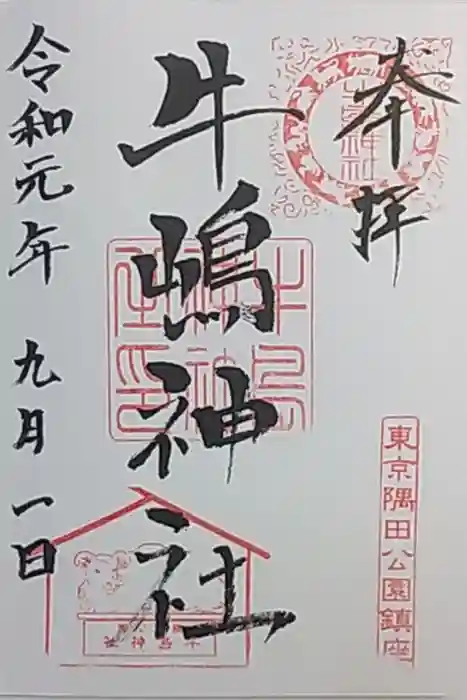 奉拝
牛嶋神社
令和元年 九月 一日
東京隅田公園鎮座